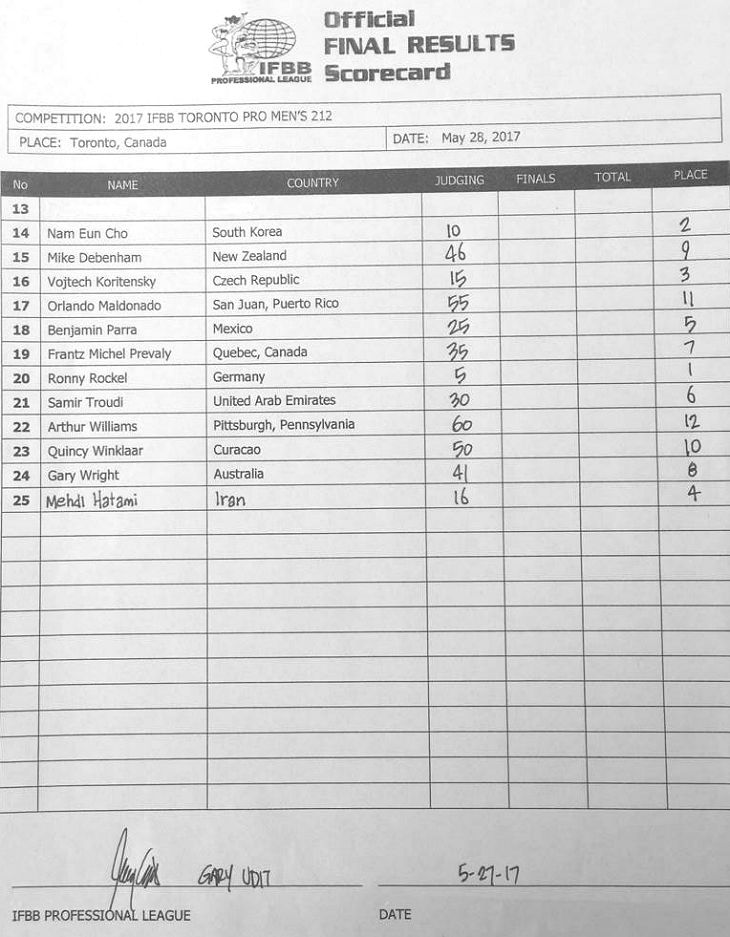 Official
FINAL RESULTS
Scorecard
IFBB
PROFESSIONAL LEAGUE
COMPETITION: 2017 IFBB TORONTO PRO MEN'S 212
PLACE: Toronto, Canada DATE: May 28, 2017
No NAME COUNTRY JUDGING FINALS TOTAL PLACE
13
14 Nam Eun Cho South Korea 10 2
15 Mike Debenham New Zealand 46 9
16 Vojtech Koritensky Czech Republic 15 3
17 Orlando Maldonado San Juan, Puerto Rico 55 11
18 Benjamin Parra Mexico 25 5
19 Frantz Michel Prevaly Quebec, Canada 35 7
20 Ronny Rockel Germany 5 1
21 Samir Troudi United Arab Emirates 30 6
22 Arthur Williams Pittsburgh, Pennsylvania 60 12
23 Quincy Winklaar Curacao 50 10
24 Gary Wright Australia 41 8
25 Mehdi Hatami Iran 16 4
GARY UDIT 5-27-17
IFBB PROFESSIONAL LEAGUE DATE